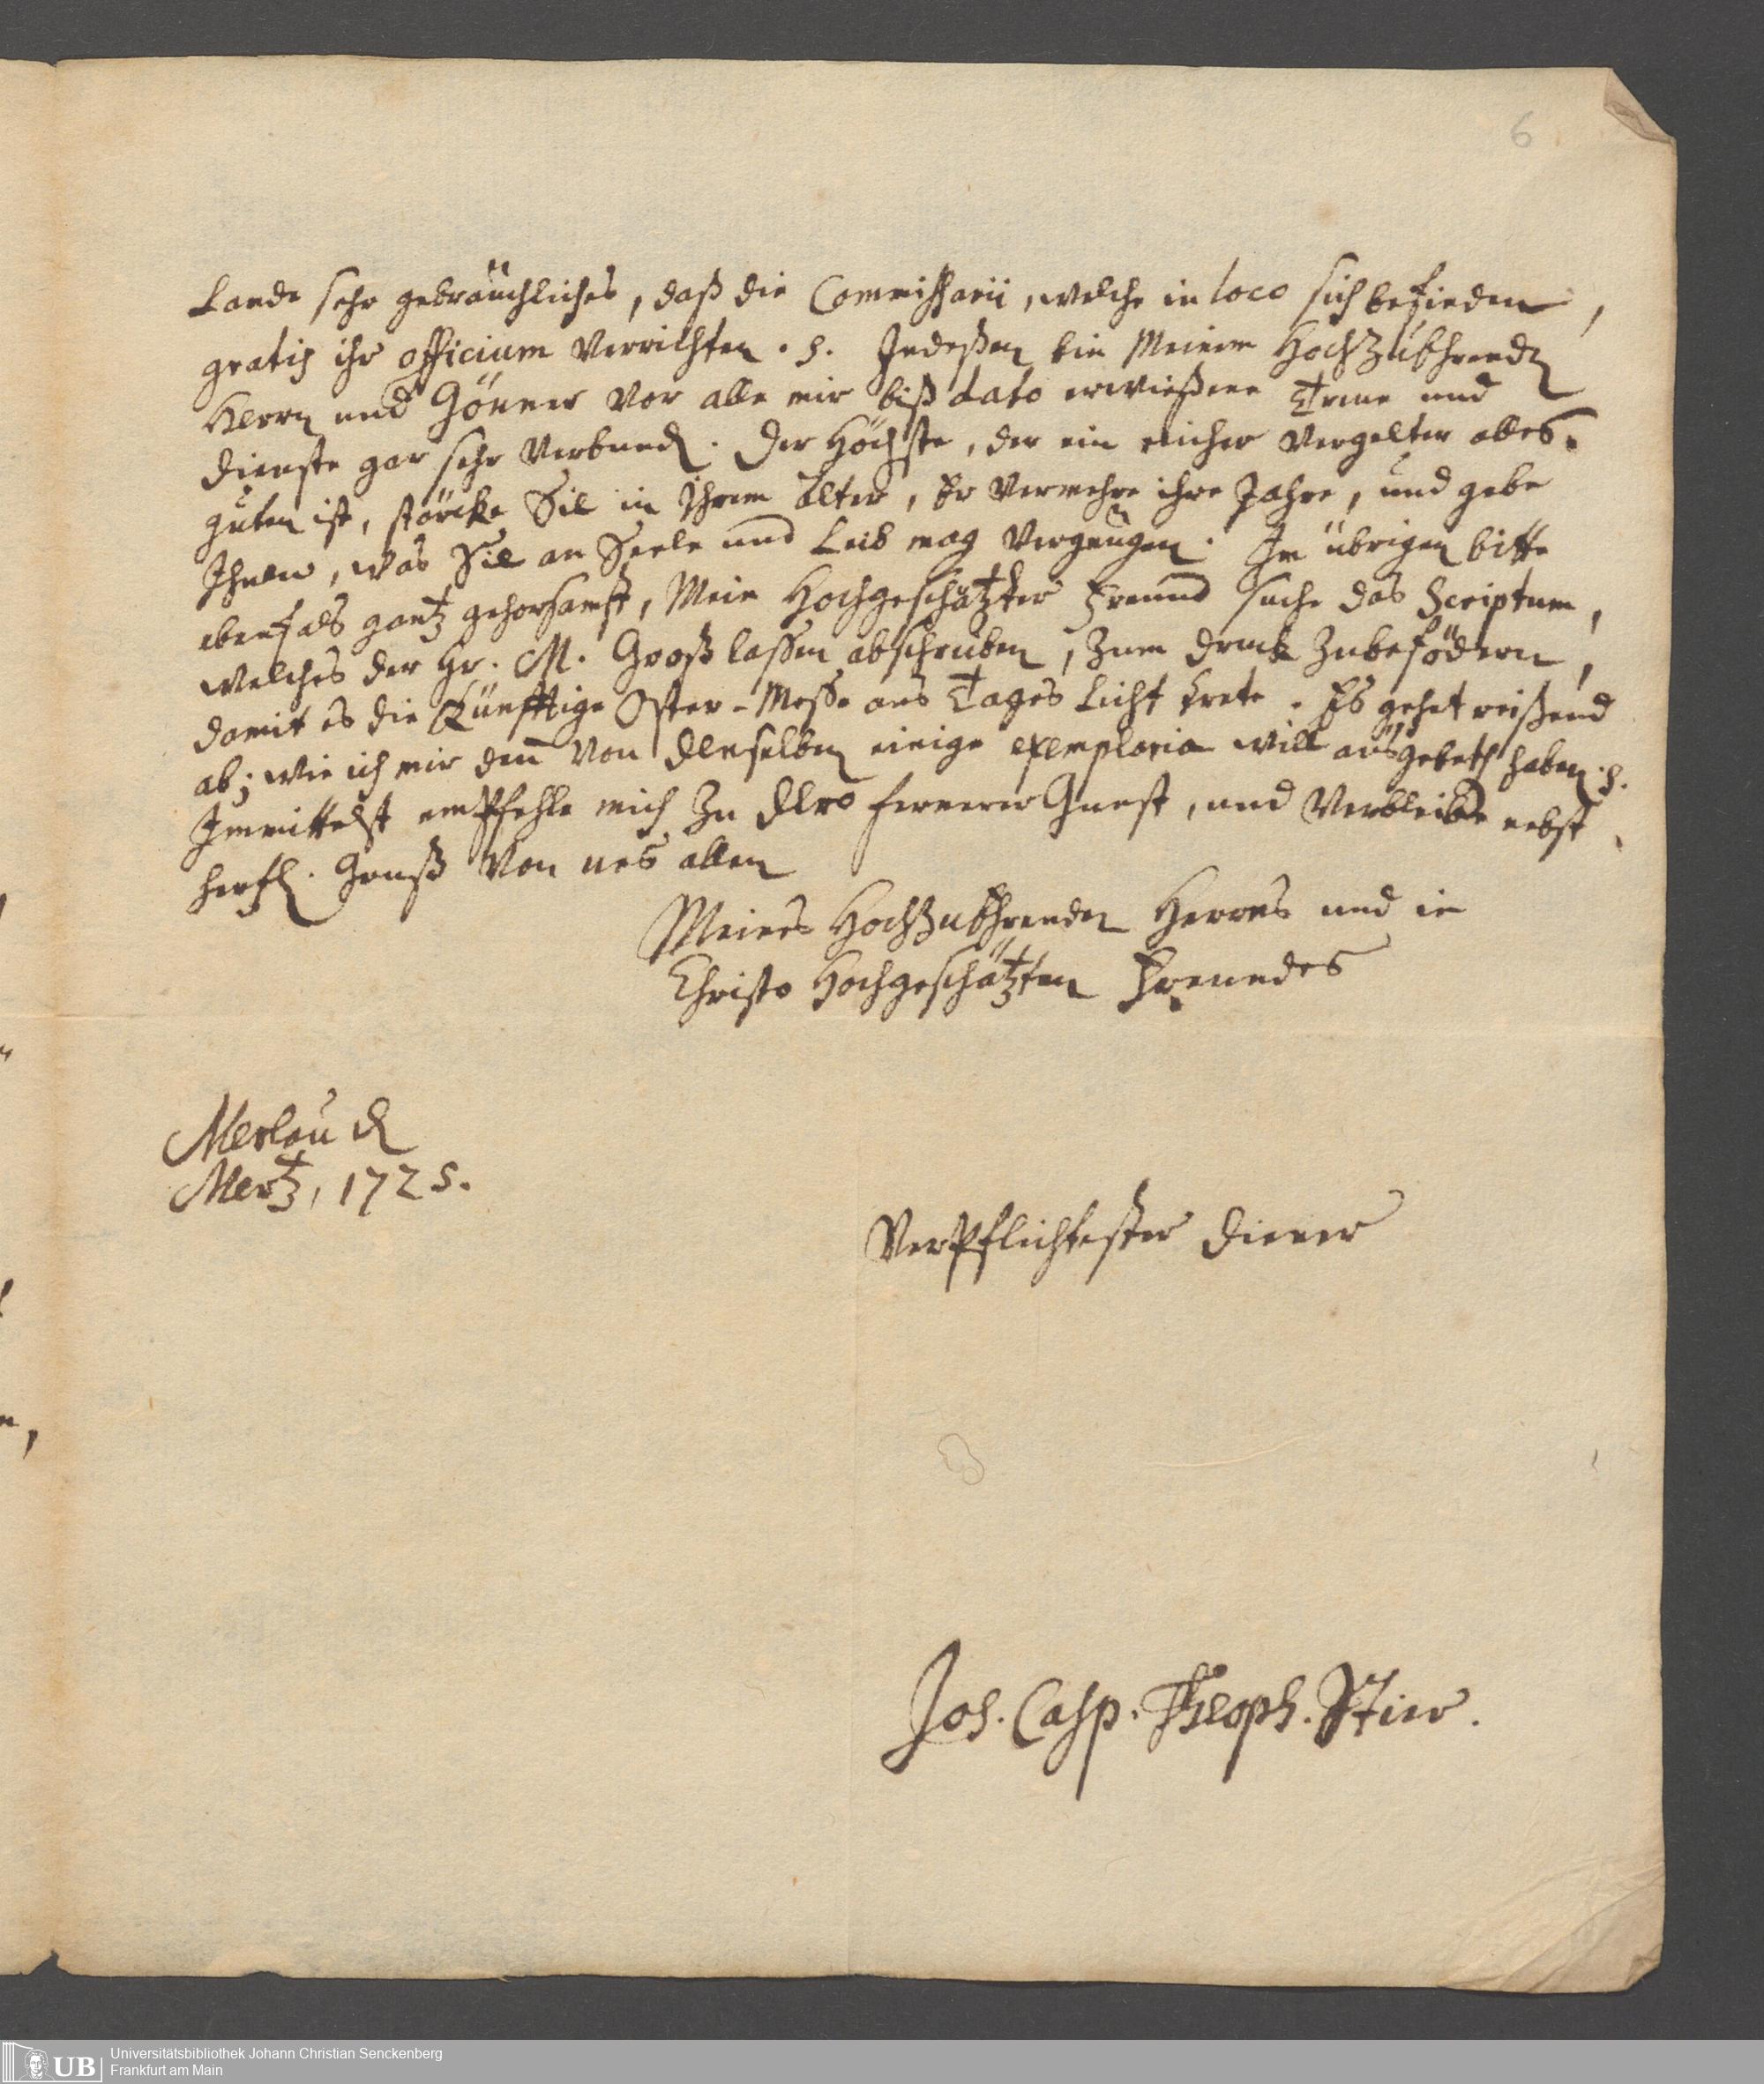 6
Lande sehr gebräuchliches, daß die Commissarii, welche in loco sich befinden,
gratis ihr officium verrichten. Indeßen bin Meinem HochzuEhrenden
Herrn und Gönner vor alle mir biß dato erwießene Treue und
Dienste gar sehr verbunden. Der Höchste, der ein reicher Vergelter alles
guten ist, störcke Sie in Ihrem Alter, Er vermehre ihre Jahre, und gebe
Ihnen, was Sie an Seele und Leib mag vergnügen. Im übrigen bitte
ebenfals gantz gehorsamst, Mein Hochgeschätzter Freund suche das Scriptum,
welches der Hr. M. Groß lassen abschreiben, zum Druck zubefödern,
damit es die Künfftige Oster-Messe ans Tages Licht trete. Es gehet reißend
ab; wie ich mir deñ von denselben einige exemplaria will ausgebethen haben.
Immittelst empfehle mich zu Dero fernerer Gunst, und verbleibe nebst
hertzl. Gruß von uns allen
Meines HochzuEhrenden Herrns und in
Christo Hochgeschätzten Freundes
Merlau d
Mertz, 1725.
Verpflichtester Diener
Joh. Casp. Theoph. Stier.
UB
Universitätsbibliothek Johann Christian Senckenberg
Frankfurt am Main